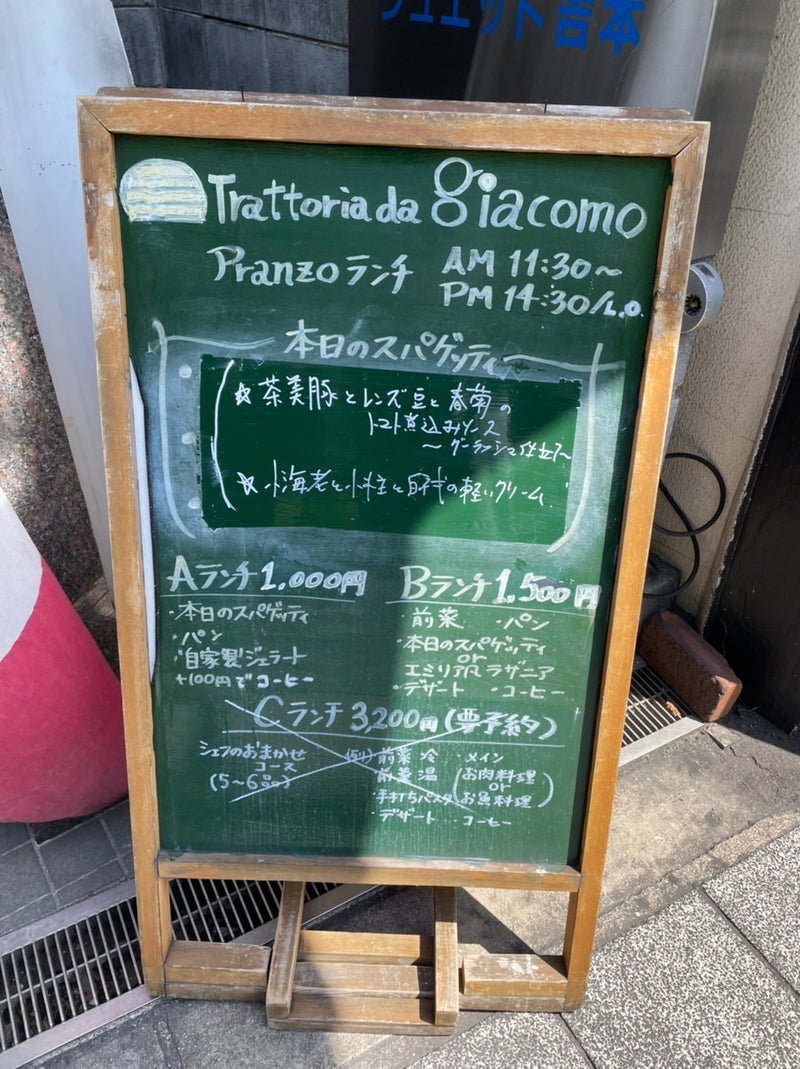 ジュエット吉本
Trattoria da giacomo
Pranzo ランチ
AM 11:30~
PM 14:30/L.O.
本日のスパゲッティ
☆ 茶美豚とレンズ豆と春菊の
トマト煮込みソース
~グーラッシュ仕立て~
☆ 小海老と小柱との軽いクリーム
Aランチ 1.000円
・本日のスパゲッティ
・パン
・自家製ジェラート
+100円でコーヒー
Bランチ 1.500円
・前菜 ・パン
・本日のスパゲッティ
or
エミリア風ラザニア
・デザート ・コーヒー
Cランチ 3,200円 (要予約)
シェフのおまかせ
コース
(5~6品)
(例) 前菜 冷
前菜 温
・手打ちパスタ
・デザート
・メイン
(お肉料理
or
お魚料理)
・コーヒー